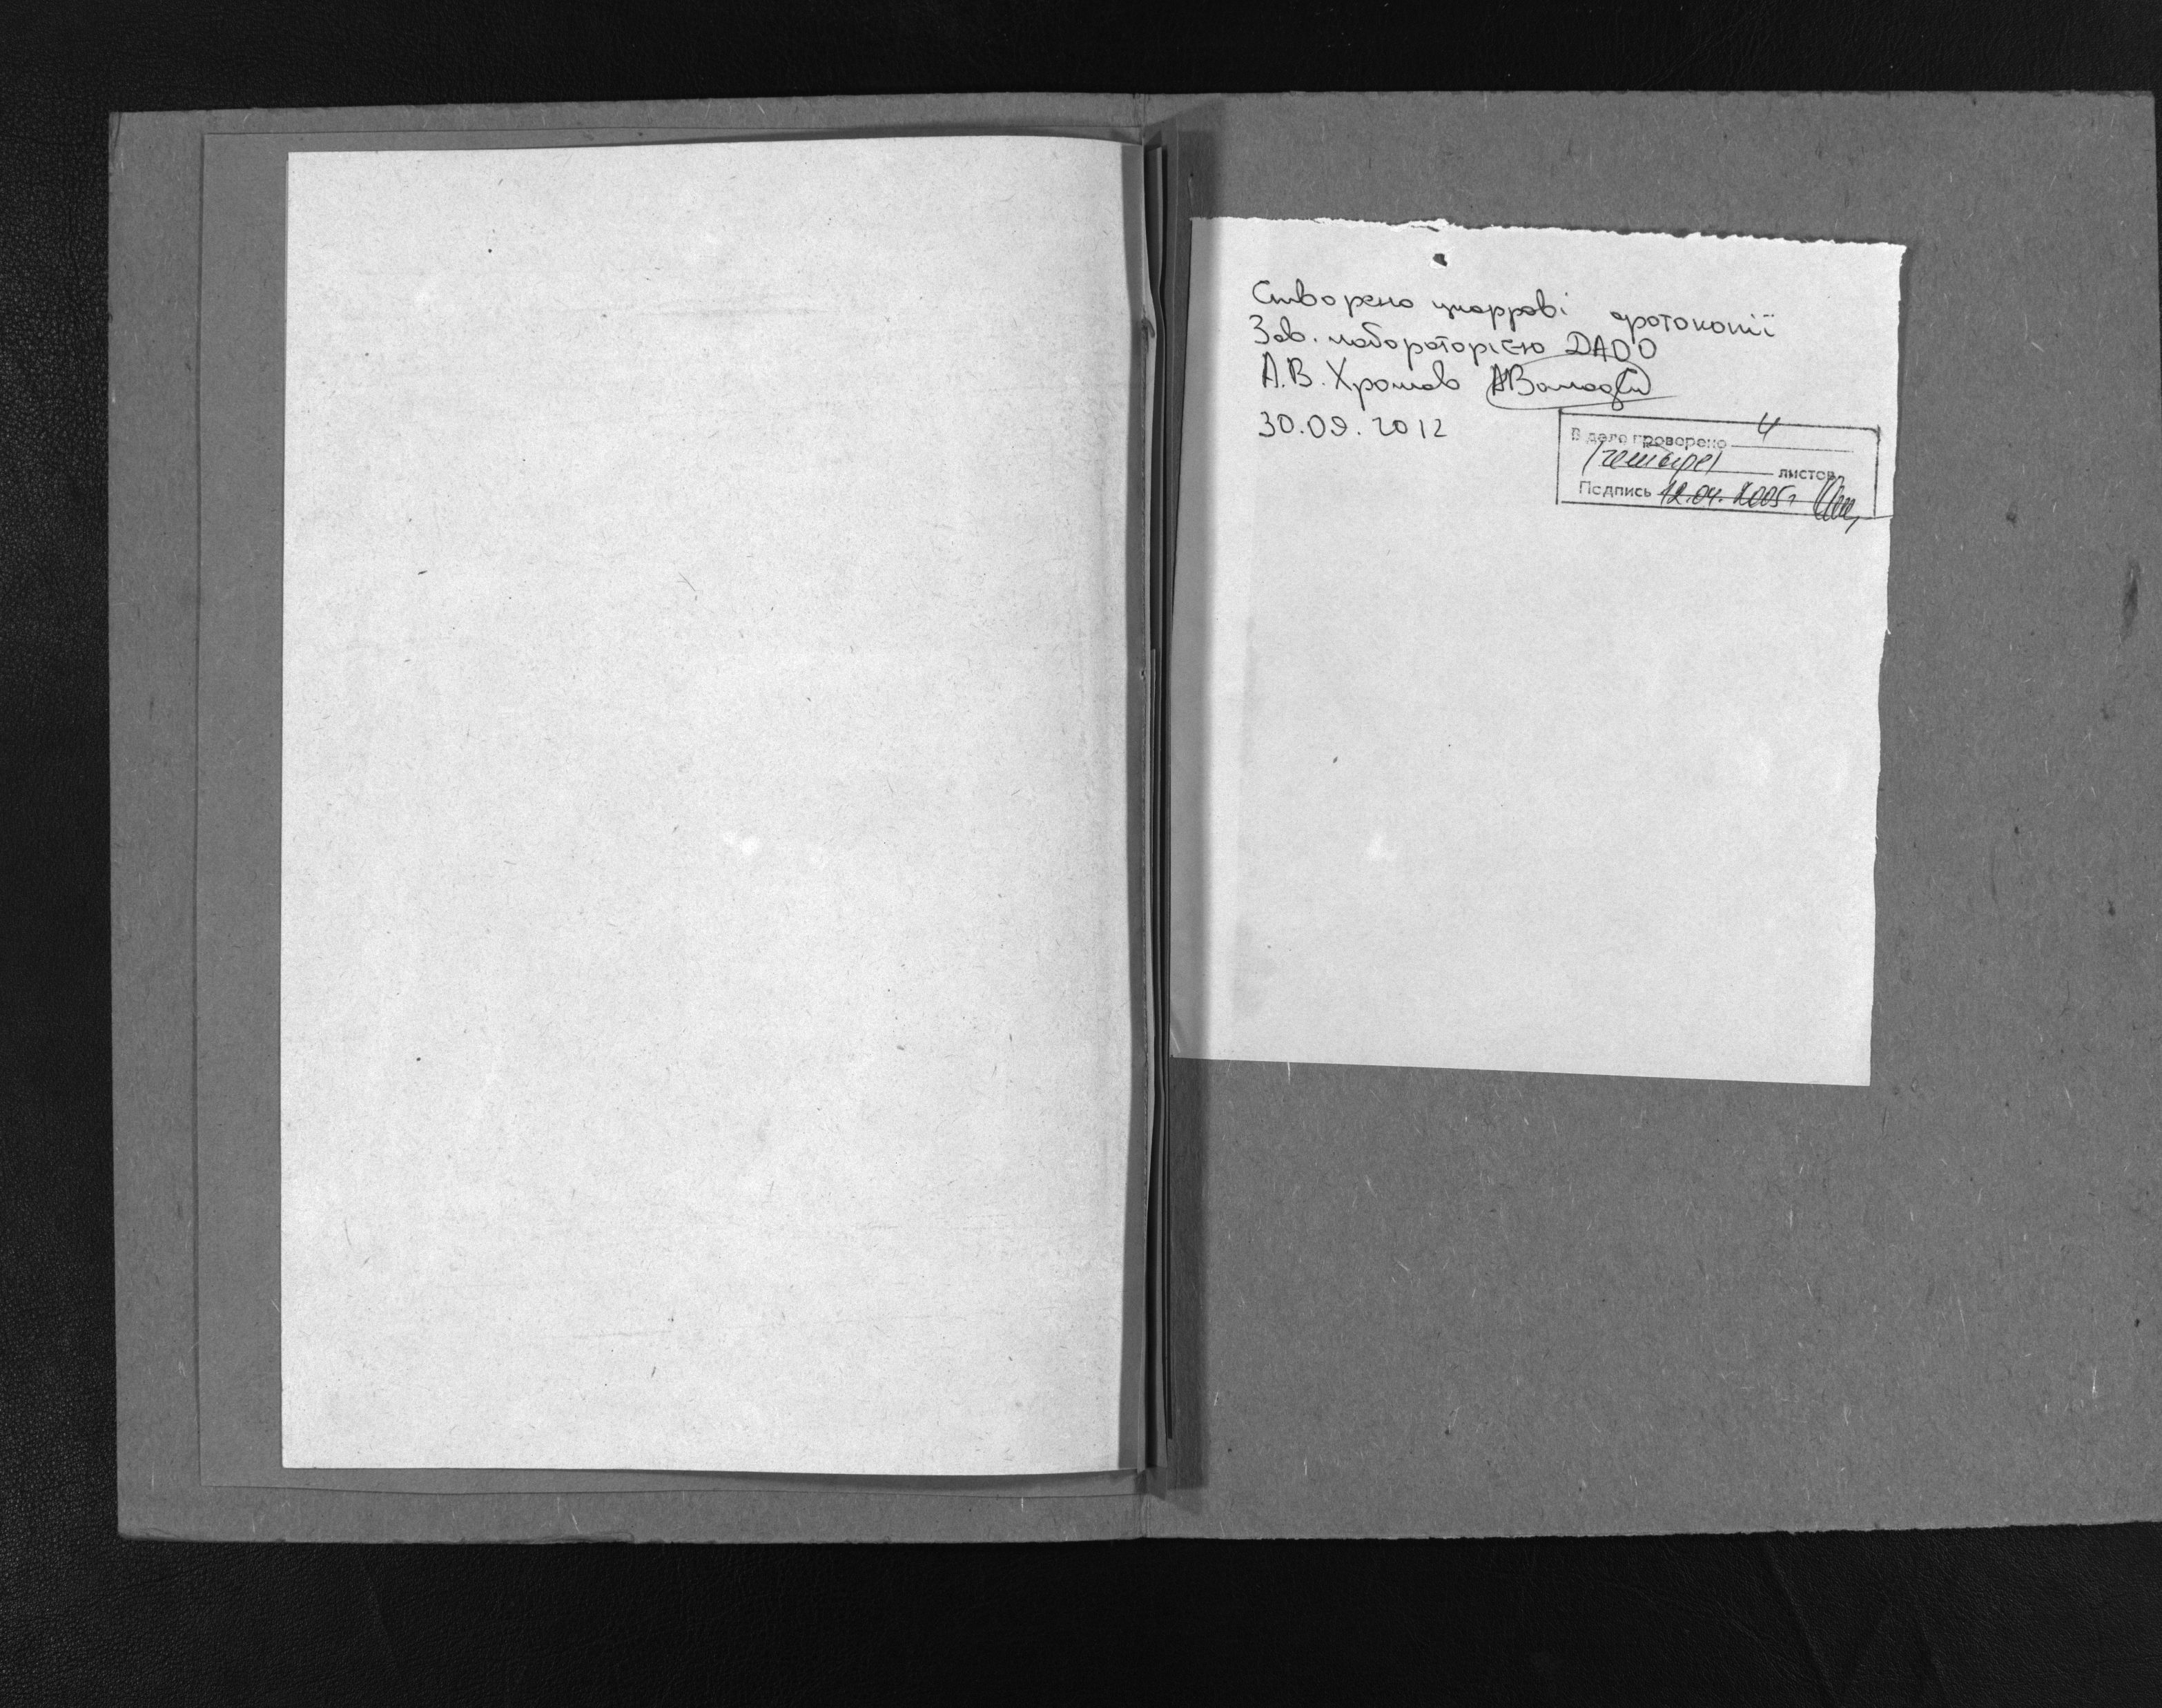 Створено цифрові фотокопії
Зав. лабораторією ДАОО
А.В. Хромов
30.09.2012
В деле проверено 4
(четыре) листов
Подпись 12.04.2005г